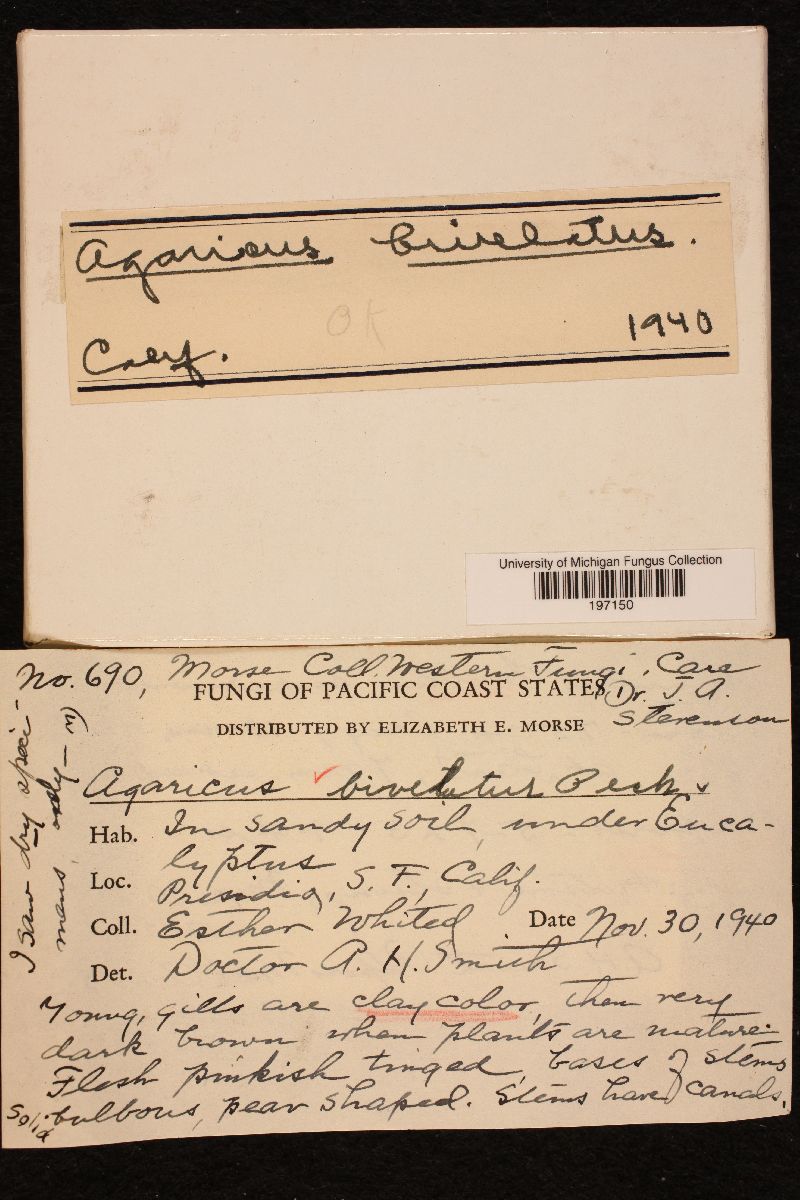 Agaricus bivelatus.
OK
Calif. 1940
University of Michigan Fungus Collection
197150
No. 690, Morse Coll. Western Fungi. Care
FUNGI OF PACIFIC COAST STATES Dr. J. A.
Stevenson
DISTRIBUTED BY ELIZABETH E. MORSE
Agaricus ✓ bivelatus Peck.
Hab. In sandy soil, under Euca-
lyptus
Loc. Presidio, S. F., Calif.
Coll. Esther Whited. Date Nov. 30, 1940
Det. Doctor A. H. Smith
Young, gills are clay color, then very
dark brown when plants are mature.
Flesh pinkish tinged, bases of stems
Solid bulbous, pear shaped. Stems have canals.
I saw dry speci-
mens only – M)